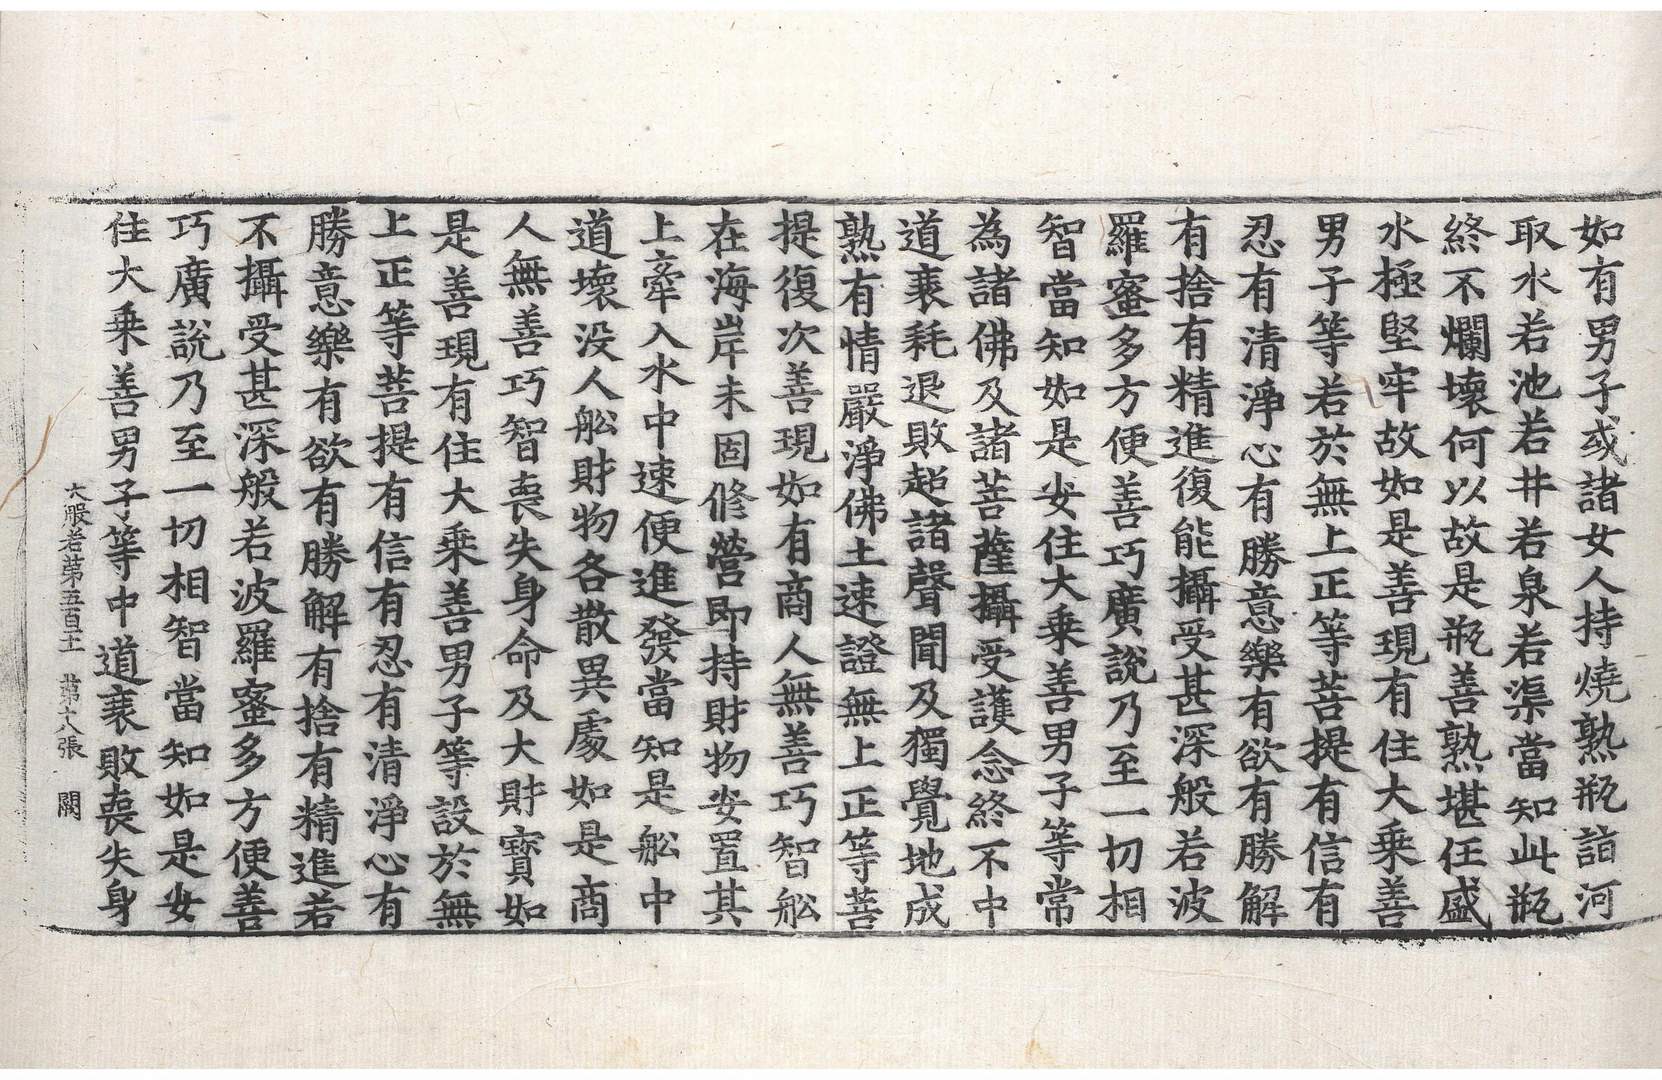 如有男子或諸女人持燒熟瓶詣河
取水若池若井若泉若渠當知此瓶
終不爛壞何以故是瓶善熟堪任盛
水極堅牢故如是善現有住大乗善
男子等若於無上正等菩提有信有
忍有清淨心有勝意樂有欲有勝解
有捨有精進復能攝受甚深般若波
羅蜜多方便善巧廣說乃至一切相
智當知如是安住大乗善男子等常
為諸佛及諸菩薩攝受護念終不中
道衰耗退敗超諸聲聞及獨覺地成
熟有情嚴淨佛土速證無上正等菩
提復次善現如有商人無善巧智舩
在海岸未固修營即持財物安置其
上牽入水中速便進發當知是舩中
道壞没人舩財物各散異處如是商
人無善巧智喪失身命及大財寶如
是善現有住大乗善男子等設於無
上正等菩提有信有忍有清淨心有
勝意樂有欲有勝解有捨有精進若
不攝受甚深般若波羅蜜多方便善
巧廣說乃至一切相智當知如是安
住大乗善男子等中道衰敗喪失身
大般若第五百十一　第十八張　闕